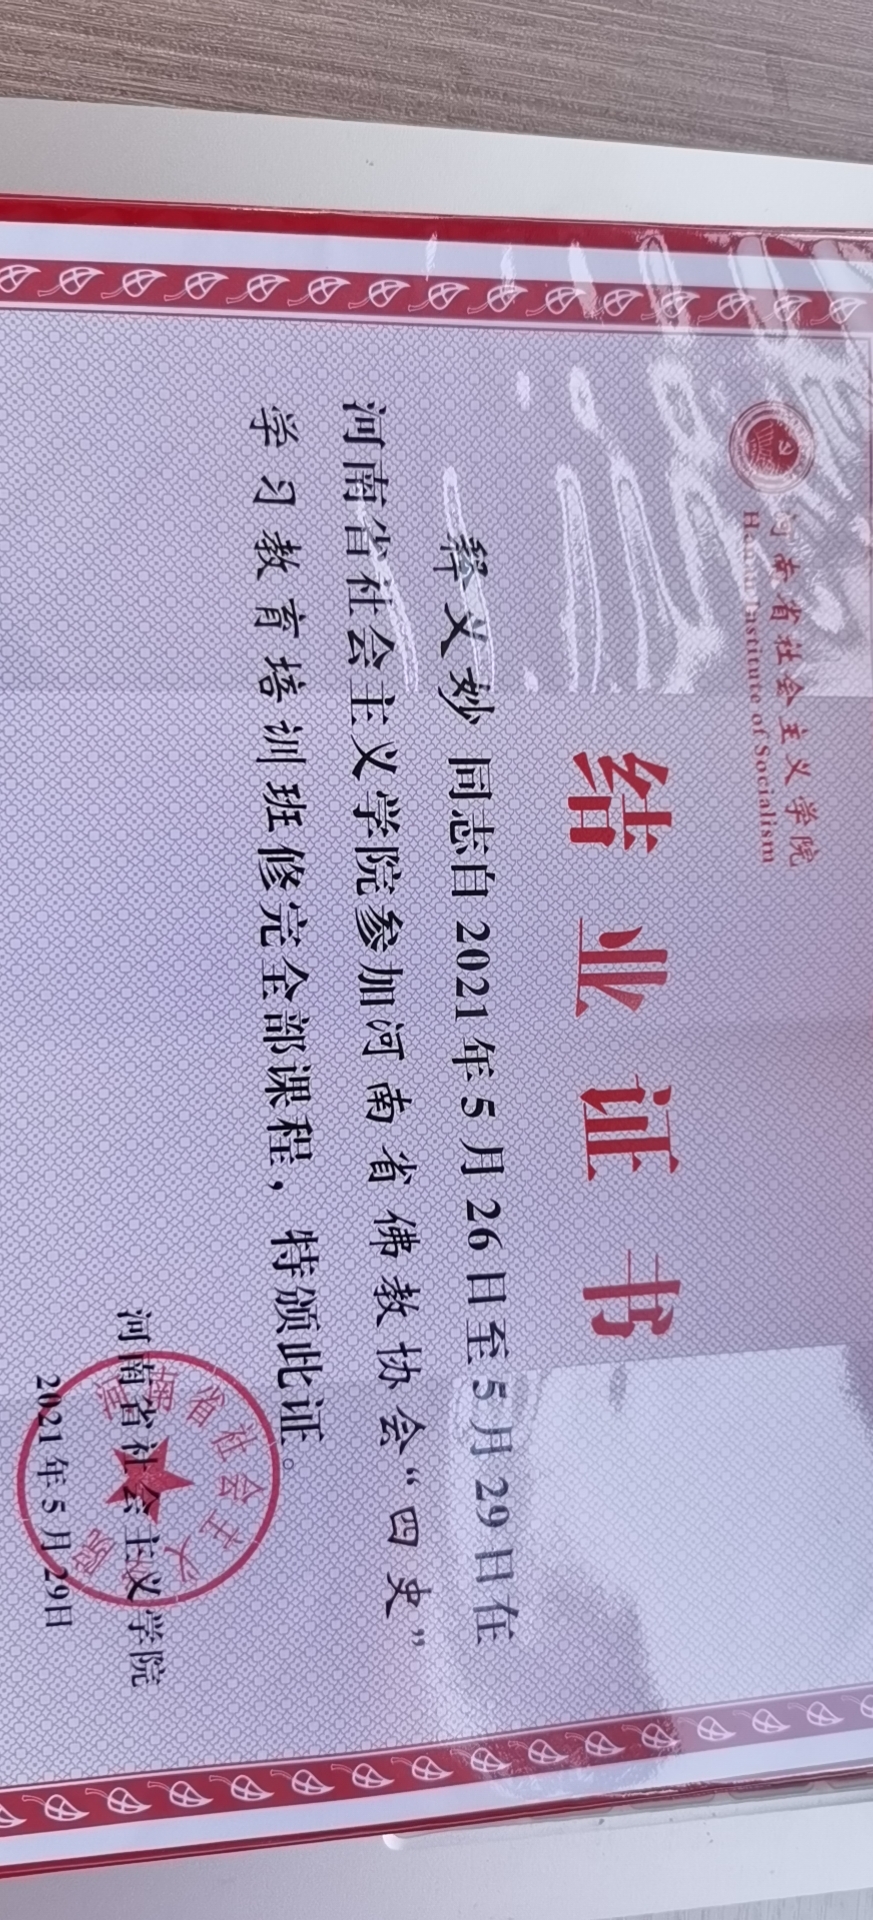 河南省社会主义学院
Henan Institute of Socialism
结业证书
释义妙 同志自2021年5月26日至5月29日在
河南省社会主义学院参加河南省佛教协会“四史”
学习教育培训班修完全部课程，特颁此证。
河南省社会主义学院
2021年5月29日
河南省社会主义学院